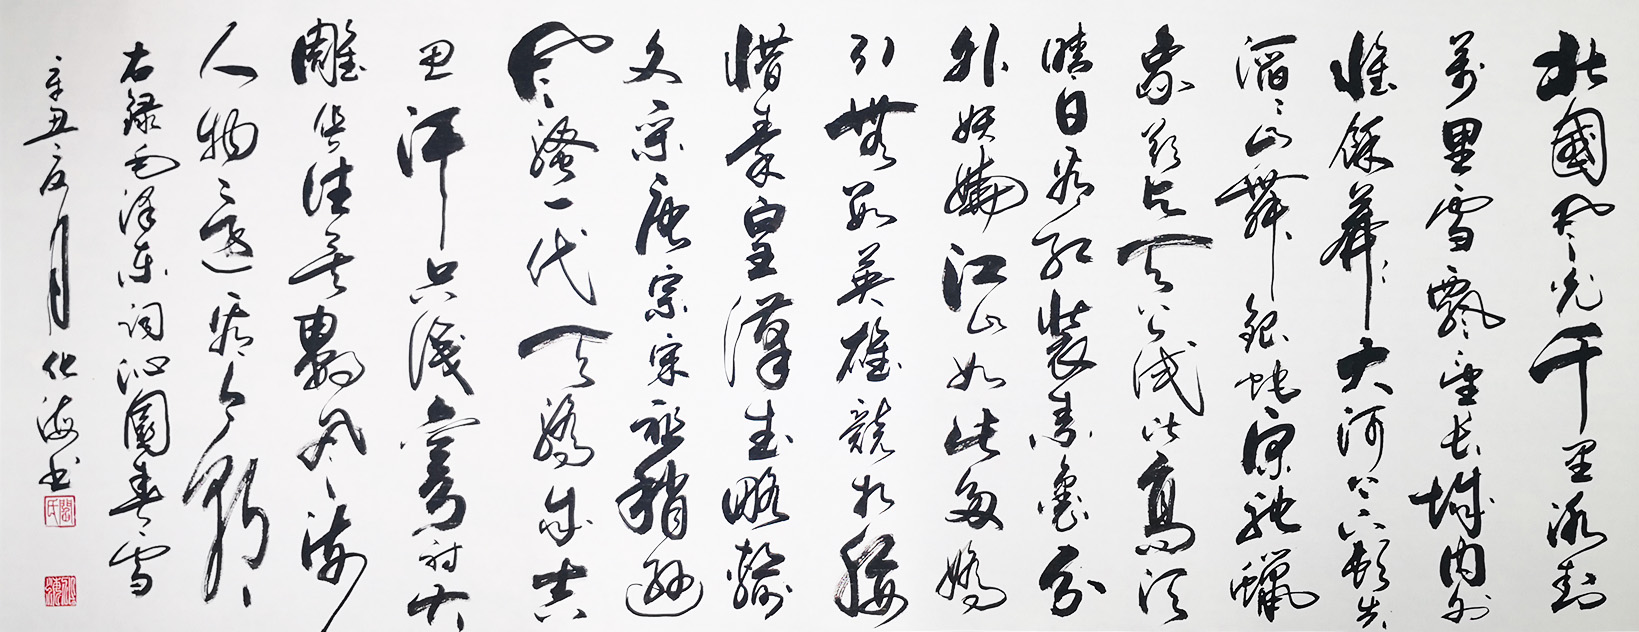 北國風光千里冰封
萬里雪飄望長城内外
惟餘莽〻大河上下頓失
滔〻山舞銀蛇原馳蠟
象欲与天公試比高須
晴日看紅裝素裹分
外妖嬈江山如此多嬌
引無數英雄競折腰
惜秦皇漢武略輸
文采唐宗宋祖稍遜
風騷一代天驕成吉
思汗只識彎弓射大
雕俱往矣數風流
人物還看今朝
右錄毛澤東詞沁園春雪
辛丑夏月化海书